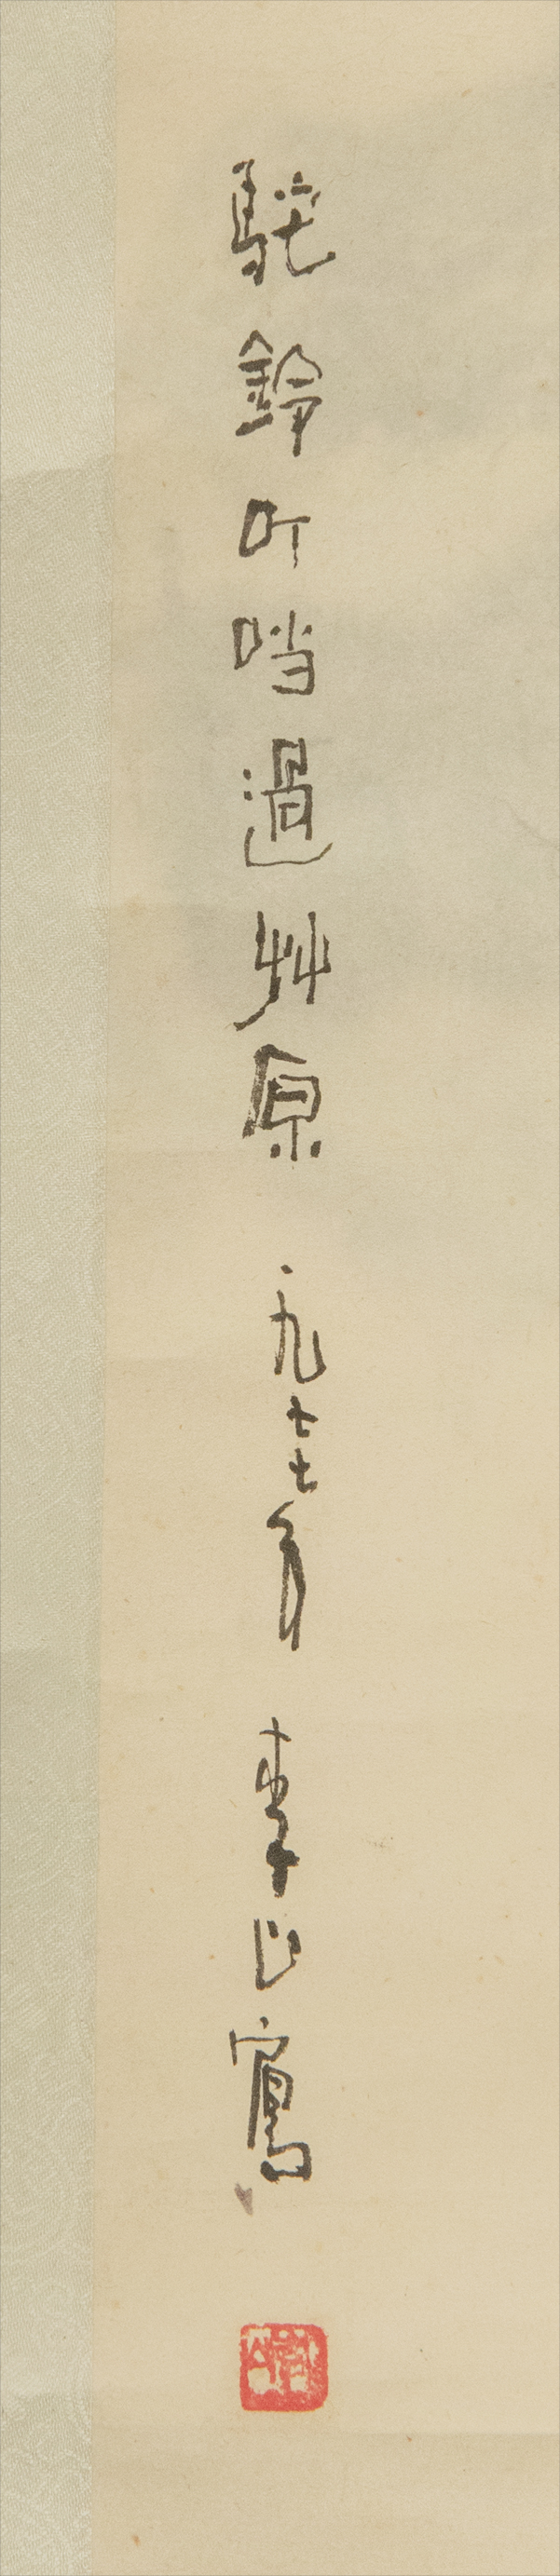 駝鈴叮噹過艸原 一九七七年 李山寫